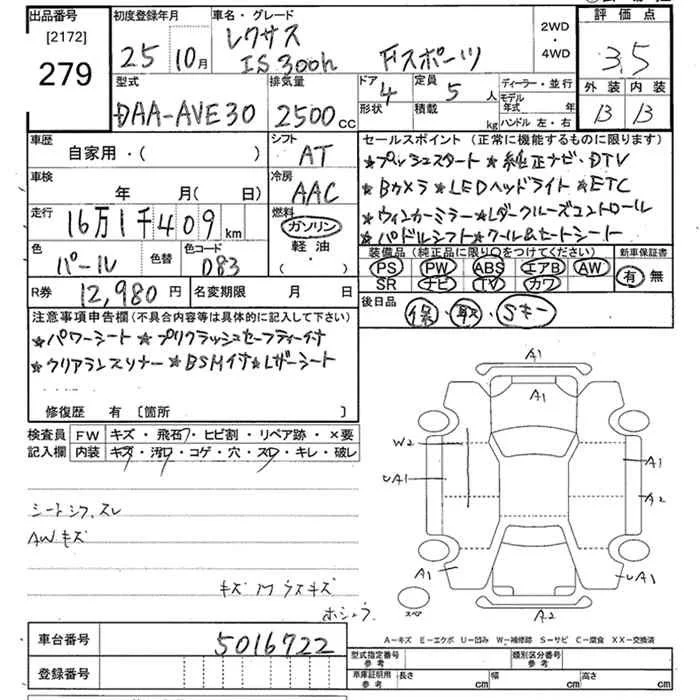 出品番号 初度登録年月 車名・グレード 評価点
[2172]
279
25年 10月
レクサス
IS300h Fスポーツ
2WD
・
4WD
3.5
外装 内装
B B
型式 排気量 ドア 定員 ディーラー・並行
DAA-AVE30 2500cc 4 5人
形状 積載 kg
モデル年式 年
ハンドル 左・右
車歴 シフト
自家用・( ) AT
車検 冷房
年 月(日) AAC
走行 燃料
16万1千409km
ガソリン
軽油
・
( )
色 色替 色コード
パール 083
R券 12,980円 名変期限 月 日
セールスポイント (正常に機能するものに限ります)
★プッシュスタート★純正ナビ・DTV
★Bカメラ★LEDヘッドライト★ETC
★ウィンカーミラー★Lダークルーズコントロール
★パドルシフト★クール&ヒートシート
装備品 (純正品に限り○をつけてください) 新車保証書
PS PW ABS エアB AW
SR ナビ TV カワ
有 無
後日品 保・取・Sキー
注意事項申告欄 (不具合内容等は具体的に記入して下さい)
★パワーシート★プリクラッシュセーフティイナ
★クリアランスソナー★BSMイナ★Lザーシート
修復歴 有 [箇所 ]
検査員 FW キズ・飛石・ヒビ割・リペア跡・×要
記入欄 内装 キズ・汚・コゲ・穴・スレ・キレ・破レ
シートシワ、スレ
AWキズ
キズ
ウスキズ
ホシュウ
A1
A1
W2
UA1
A1
A2
A1
UA1
A2
スペア
A−キズ E−エクボ U−凹み W−補修跡 S−サビ C−腐食 XX−交換済
車台番号 5016722
登録番号
型式指定番号 参考 類別区分番号 参考
車庫証明用 参考 長さ cm 幅 cm 高さ cm